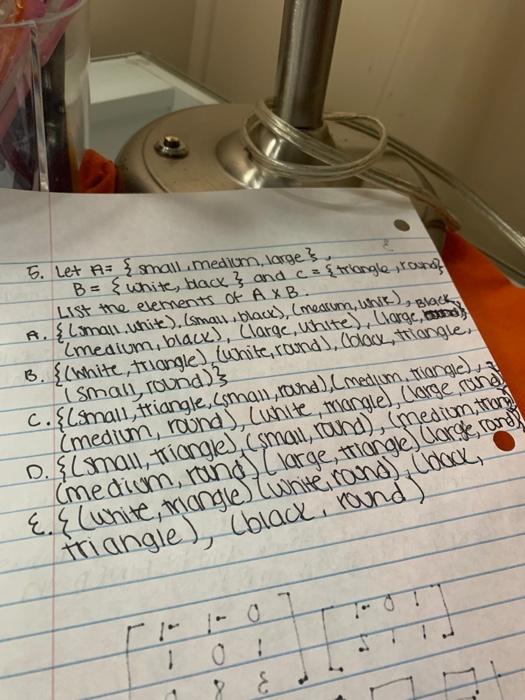 5. Let A= {small, medium, large},
B= {white, black} and C = {triangle, round}
List the elements of A x B.
A. {(small, white), (small, black), (medium, white),
(medium, black), (large, white), (large, Black
B. {(white, triangle), (white, round), (black, triangle,
(small, round)}
C. {(small, triangle, (small, round), (medium, triangle),
(medium, round), (white, triangle), (large round)}
D. {(small, triangle), (small, round), (medium,
(medium, rand) (large, triangle) (large, round)}
E. {(white, triangle) (white, round), (black,
triangle), (black, round)
1 0 1